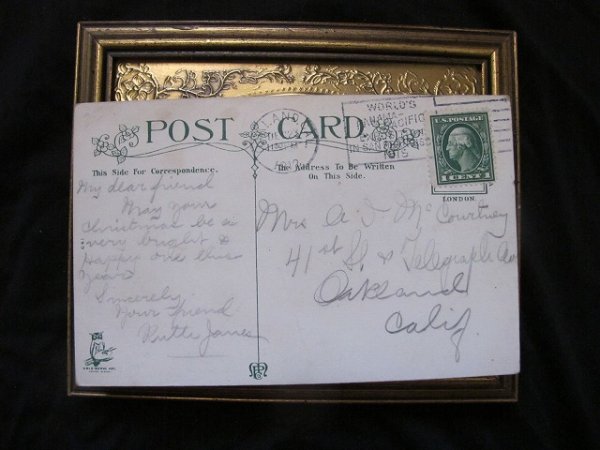 POST CARD.
WORLD'S
PANAMA-
PACIFIC
IN SAN FRANCISCO
1915
U.S. POSTAGE
1 CENT 1
LONDON.
This Side For Correspondence.
My dear friend
May your
Christmas be a
very bright &
Happy one this
Year
Sincerely
Your friend
Ruth James
The Address To Be Written
On This Side.
Mrs A J McCourtney
41st St. & Telegraph Av
Oakland
Calif.